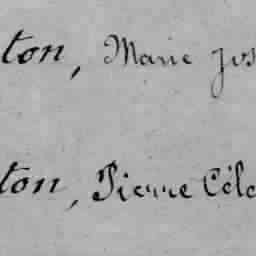 ton, Marie Jos
ton, Pierre Céle